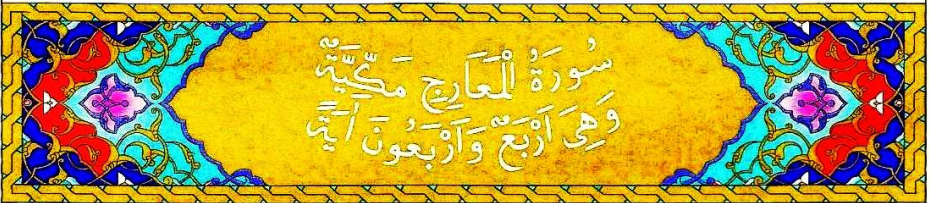 سُورَةُ الْمَعَارِجِ مَكِّيَّةٌ
وَهِيَ اَرْبَعٌ وَاَرْبَعُونَ اٰيَةً